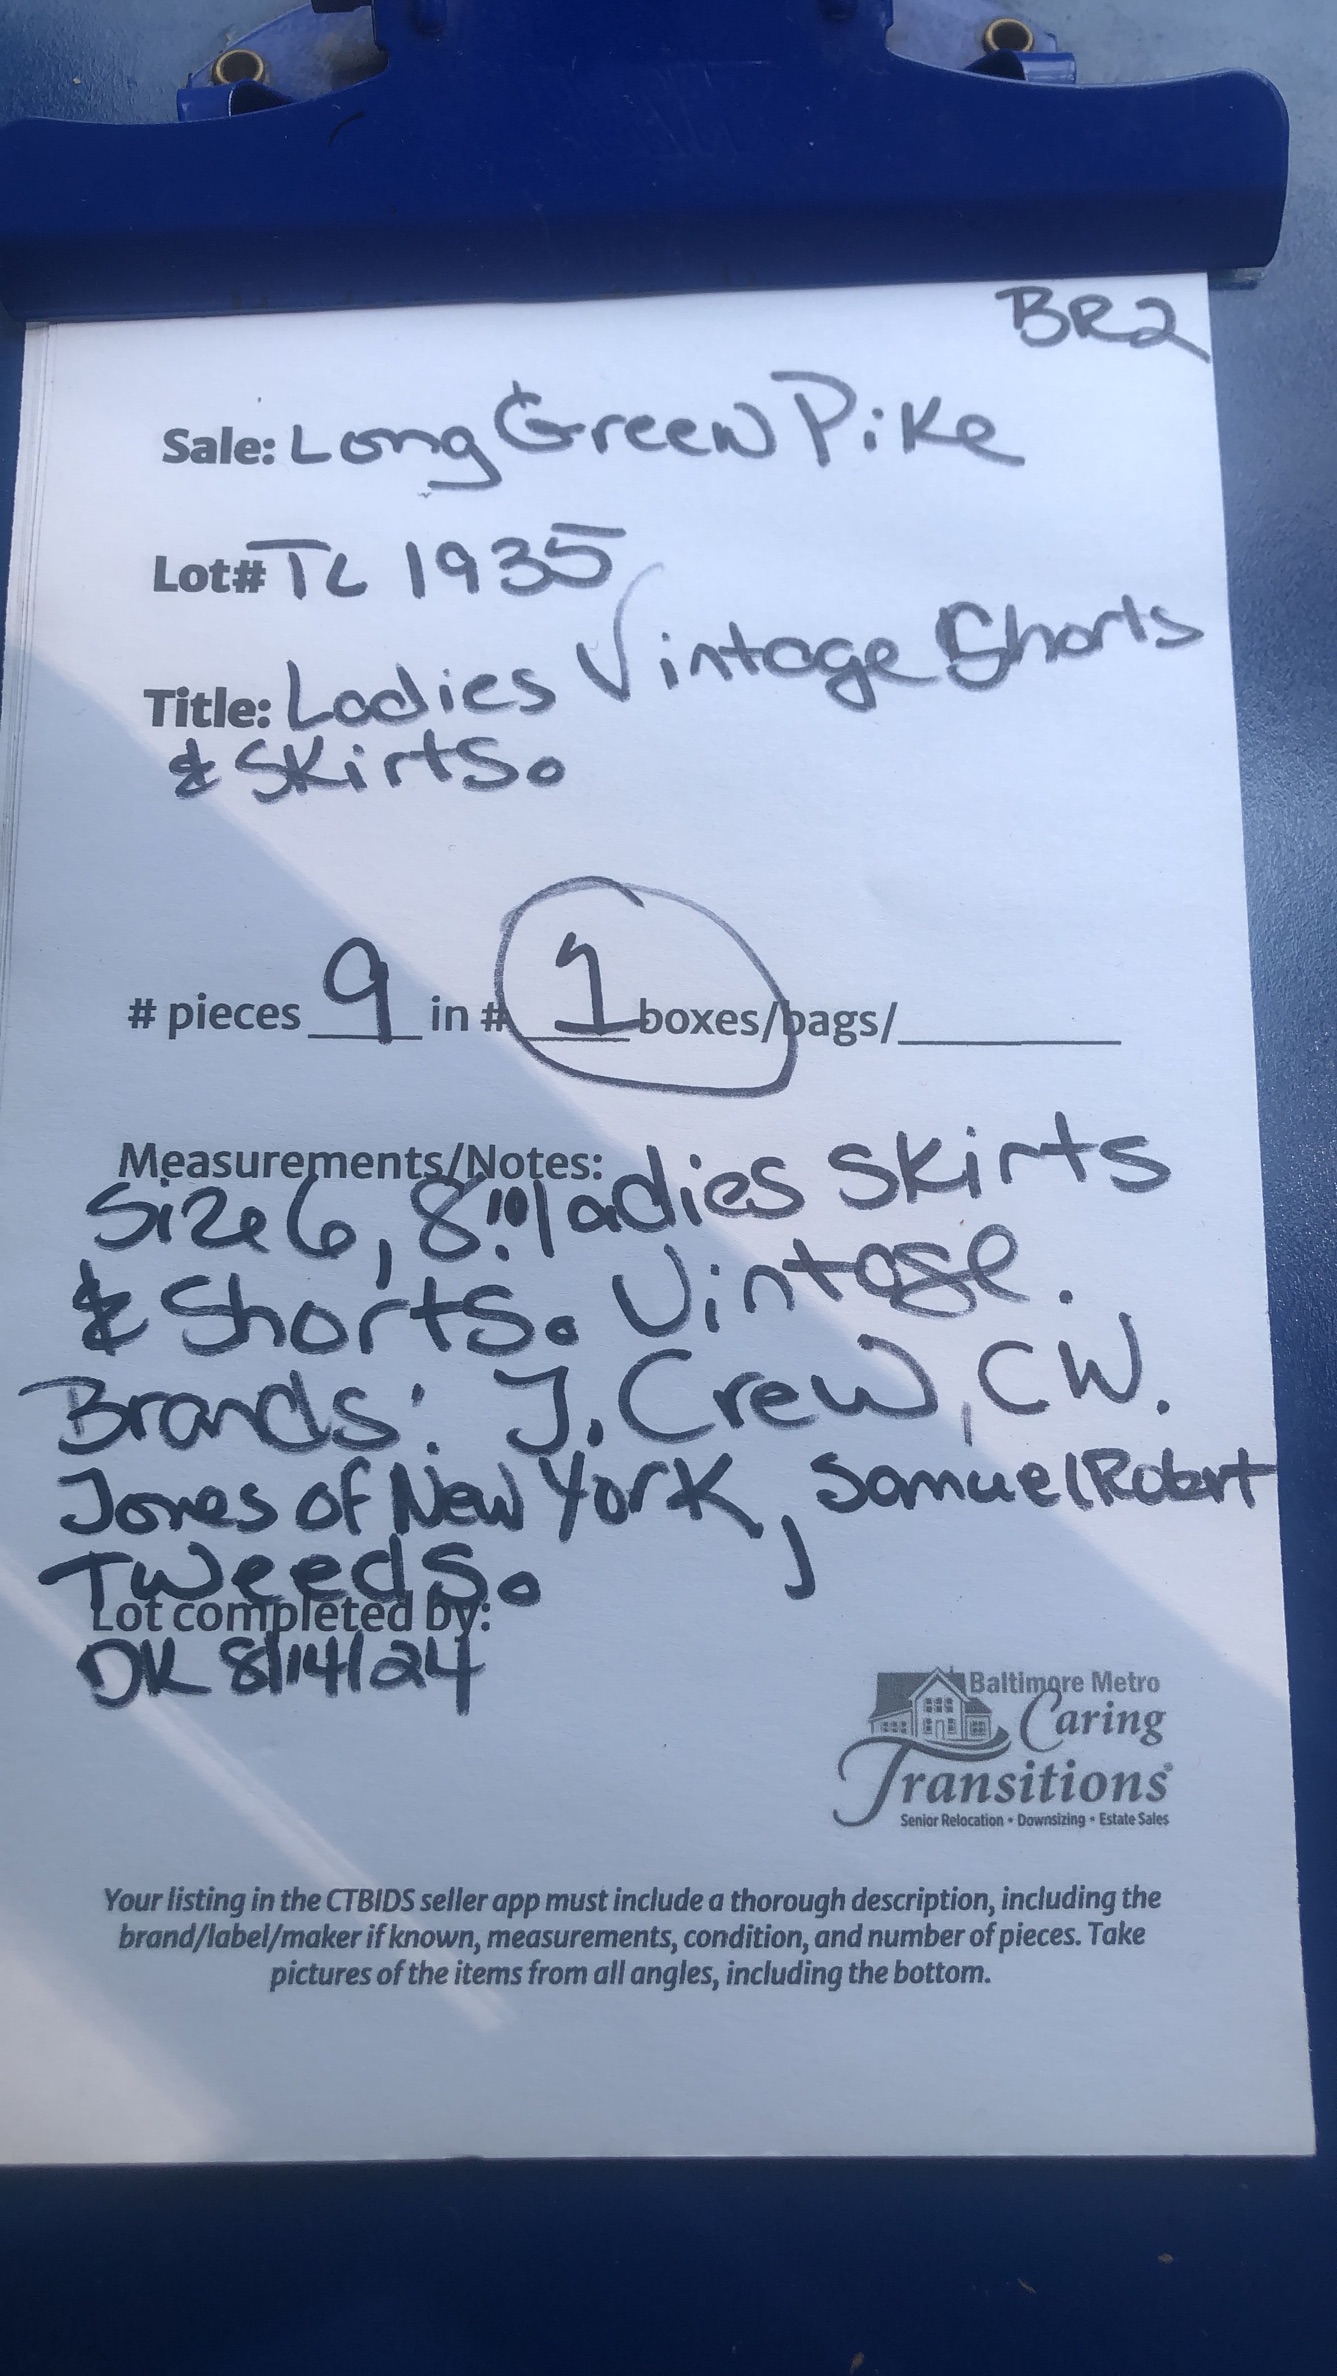 BR2
Sale: Long Green Pike
Lot# TL 1935
Title: Ladies Vintage Shorts
& Skirts.
# pieces 9 in # 1 boxes/bags/
Measurements/Notes:
Size 6, 8, 10 ladies skirts
& Shorts. Vintage.
Brands: J. Crew, CW.
Jones of New York, Samuel Robert
Tweeds.
Lot completed by:
DK 8/14/24
Baltimore Metro
Caring
Transitions®
Senior Relocation • Downsizing • Estate Sales
Your listing in the CTBIDS seller app must include a thorough description, including the
brand/label/maker if known, measurements, condition, and number of pieces. Take
pictures of the items from all angles, including the bottom.